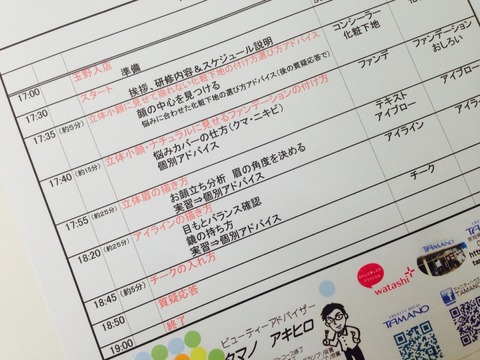 玉野入店
準備
17:00 スタート 挨拶、研修内容＆スケジュール説明
17:30 立体小顔に見せて崩れない化粧下地の付け方選び方アドバイス コンシーラー
顔の中心を見つける 化粧下地
悩みに合わせた化粧下地の選び方アドバイス(後の質疑応答で)
17:35 (約5分) 立体小顔・ナチュラルに見せるファンデーションの付け方 ファンデ ファンデーション
悩みカバーの仕方(クマ・ニキビ) おしろい
個別アドバイス
17:40 (約15分) 立体眉の描き方 テキスト アイブロー
お顔立ち分析 眉の角度を決める アイブロー
実習⇒個別アドバイス
17:55 (約25分) アイラインの描き方 アイライン アイライン
目もとバランス確認
鏡の持ち方
実習⇒個別アドバイス
18:20 (約25分) チークの入れ方 チーク
18:45 (約5分) 質疑応答
18:50 終了
19:00
ビューティーアドバイザー
タマノ アキヒロ
watashi+
TAMANO
TAMANO
TAMANO